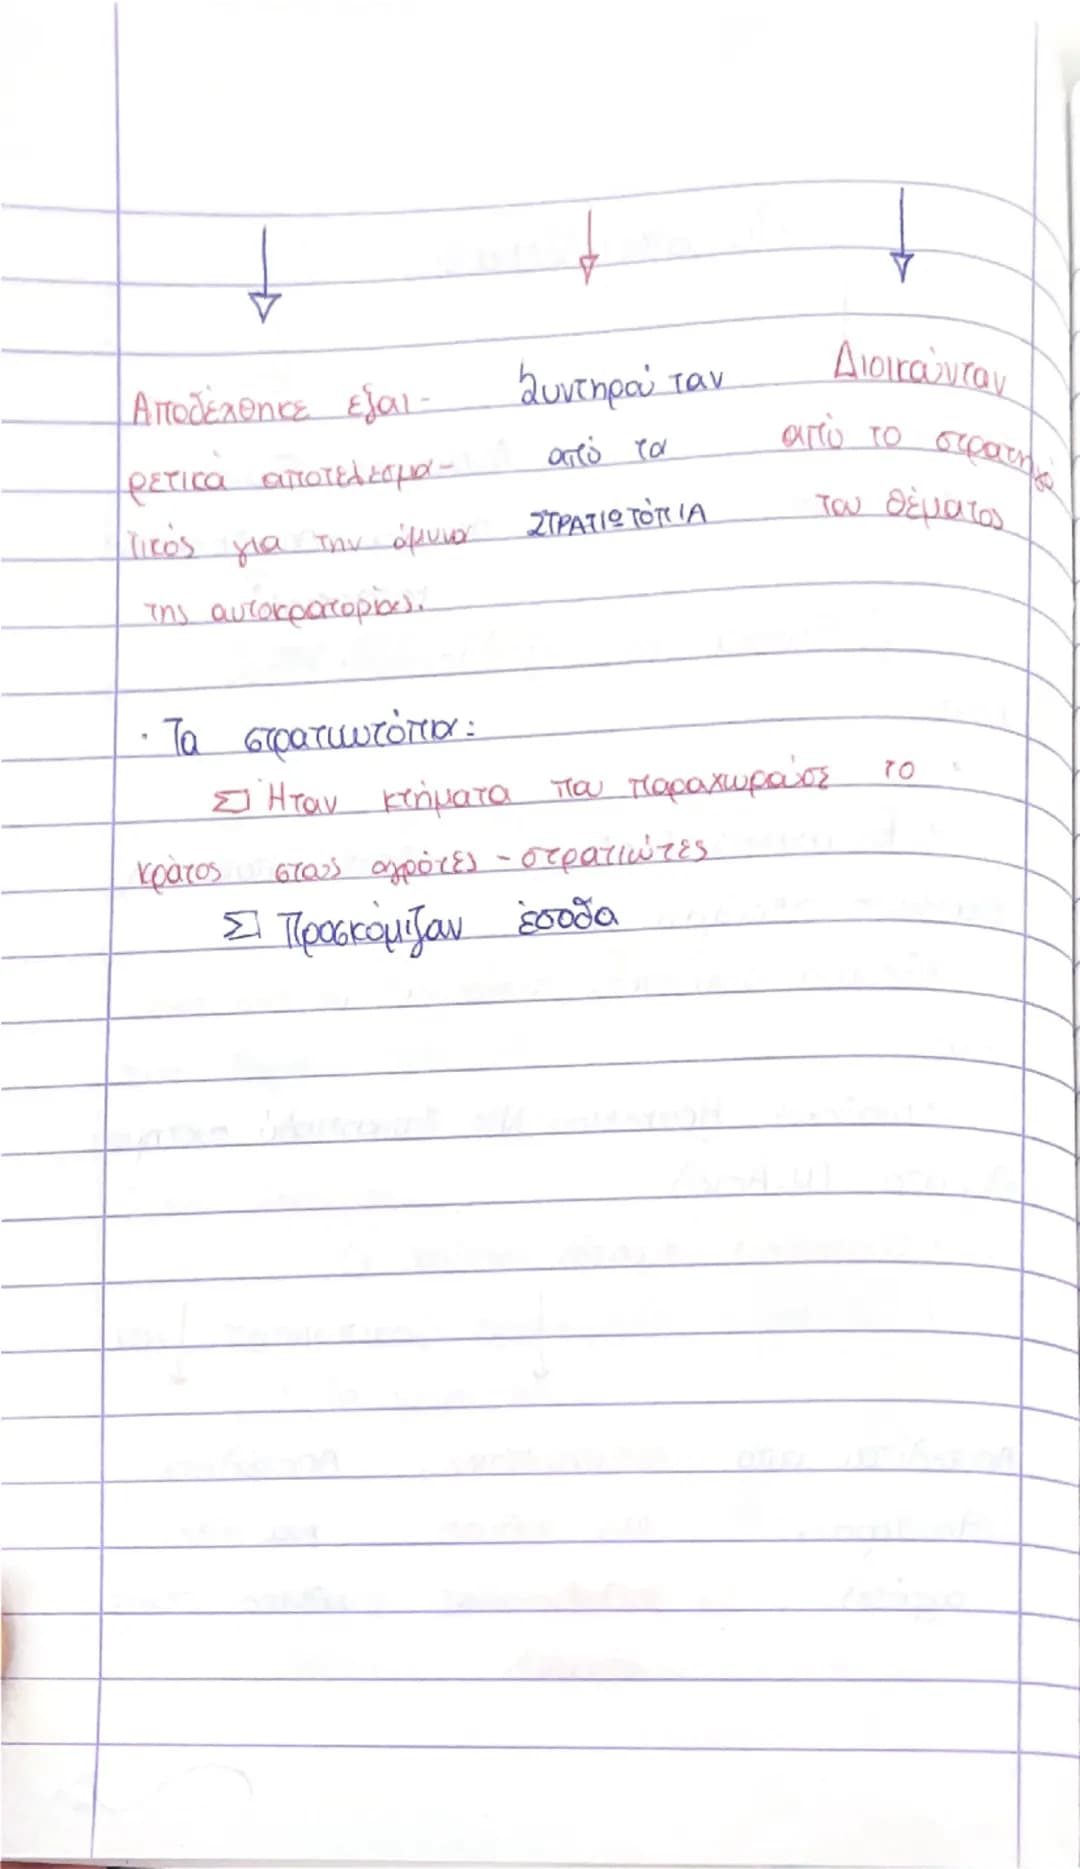 Αποδέχθηκε εξαι-
ρετικά αποτελεσμα-
τικός για την άμυνα
της αυτοκρατορίας.
Συντηρού ταν
από τα
ΣΤΡΑΤΙΩΤΟΠΙΑ
Διοικούνταν
από το στρατηγό
του θέματος
· Τα στρατιωτόπια:
Ήταν κτήματα που παραχωρούσε το
κράτος στους αγρότες - στρατιώτες
Προσκόμιζαν έσοδα